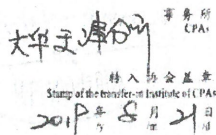 事务所
CPAs
大华天津分所
转入协会盖章
Stamp of the transfer-in Institute of CPAs
2019年8月21日